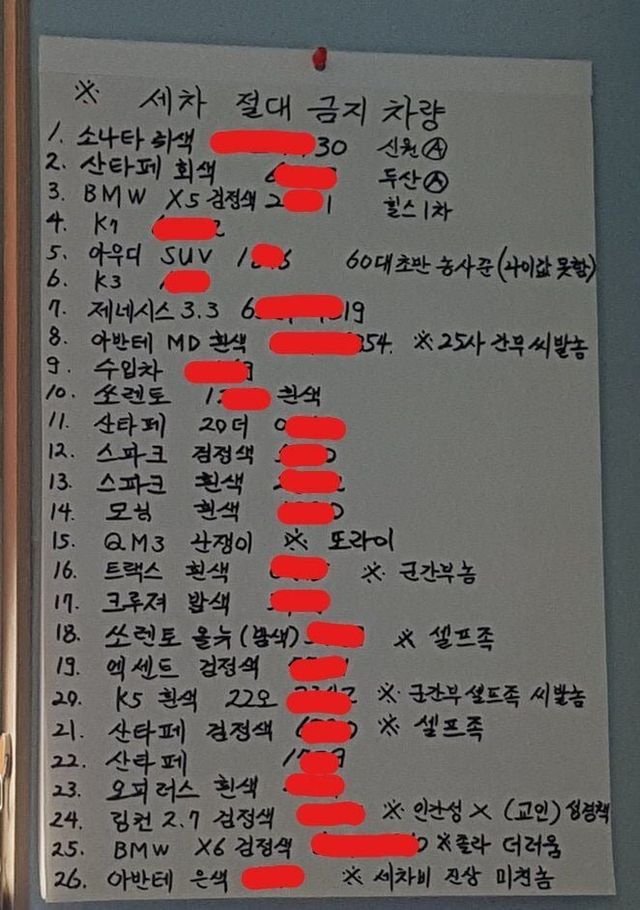 ※ 세차 절대 금지 차량
1. 소나타 회색 30 신원Ⓐ
2. 산타페 회색 6 두산Ⓐ
3. BMW X5 검정색 2 1 힐스1차
4. K7
5. 아우디 SUV 1 6 60대초반 농사꾼(나이값 못함)
6. K3
7. 제네시스 3.3 6 19
8. 아반테 MD 흰색 354. ※25사 간부 씨발놈
9. 수입차
10. 쏘렌토 12 흰색
11. 산타페 20더 0
12. 스파크 검정색 0
13. 스파크 흰색 2
14. 모닝 흰색 0
15. QM3 난쟁이 ※ 또라이
16. 트랙스 흰색 ※ 군간부놈
17. 크루져 밤색
18. 쏘렌토 올뉴(밤색) ※ 셀프족
19. 엑센트 검정색
20. K5 흰색 22오 ※ 군간부셀프족 씨발놈
21. 산타페 검정색 6 0 ※ 셀프족
22. 산타페 1 9
23. 오피러스 흰색
24. 링컨 2.7 검정색 ※ 인간성 X (교인) 성경책
25. BMW X6 검정색 0 ※졸라 더러움
26. 아반테 은색 ※ 세차비 진상 미친놈